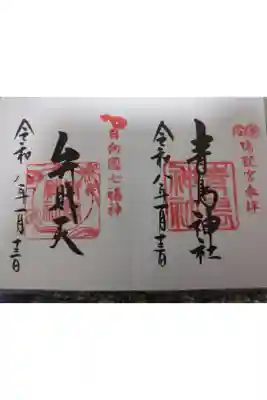 青島神社
令和八年一月十三日
日向國七福神
弁財天
令和八年一月十三日